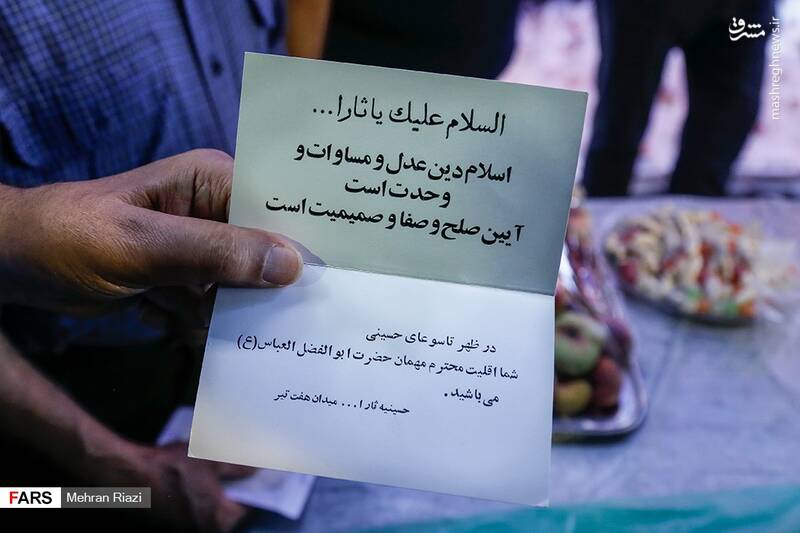 السلام عليك يا ثارا...
اسلام دین عدل و مساوات و
وحدت است
آیین صلح و صفا و صمیمیت است
در ظهر تاسوعای حسینی
شما اقلیت محترم مهمان حضرت ابوالفضل العباس(ع)
می باشید.
حسینیه ثارا... میدان هفت تیر
مشرق
mashreghnews.ir
FARS Mehran Riazi